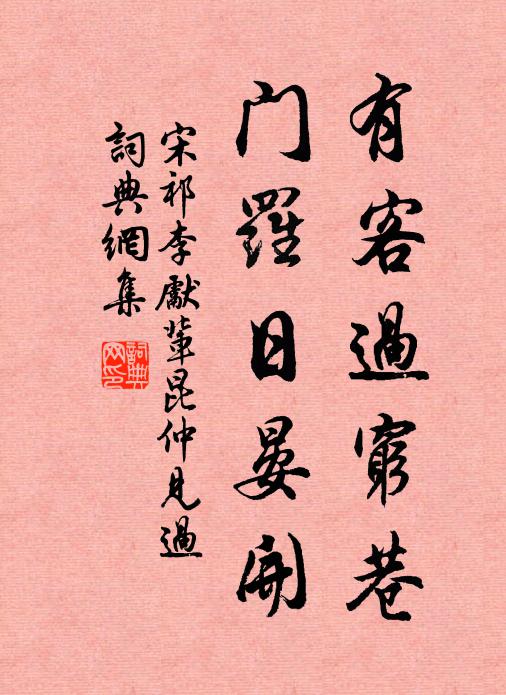 有客過窮巷
门羅日晏開
宋祁李獻輩昆仲見過
詞典網集
詞典網印